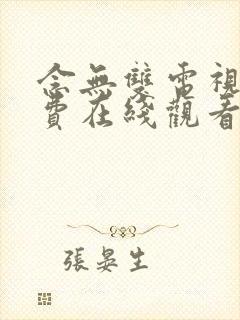 念無雙電視
費在綫觀看
張晏生